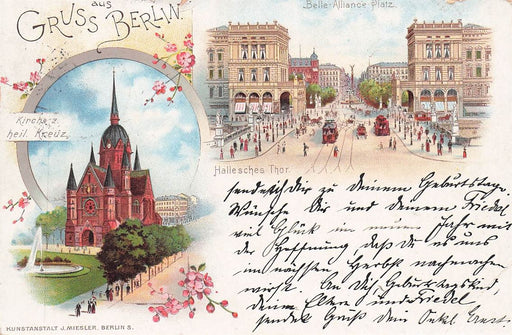 GRUSS AUS BERLIN.
Belle-Alliance Platz.
Kirche z.
heil. Kreuz.
Hallesches Thor.
sende ich Dir zu deinem Geburtstage.
Wünsche Dir und deinem Friedel
viel Glück im neuen Jahr mit
der Hoffnung daß du es uns
im nächsten Herbst nachmachen
wirst. An das Geburtstagskind,
deine Eltern und Friedel
sendet Gruß dein Onkel Ernst.
KUNSTANSTALT J. MIESLER, BERLIN S.